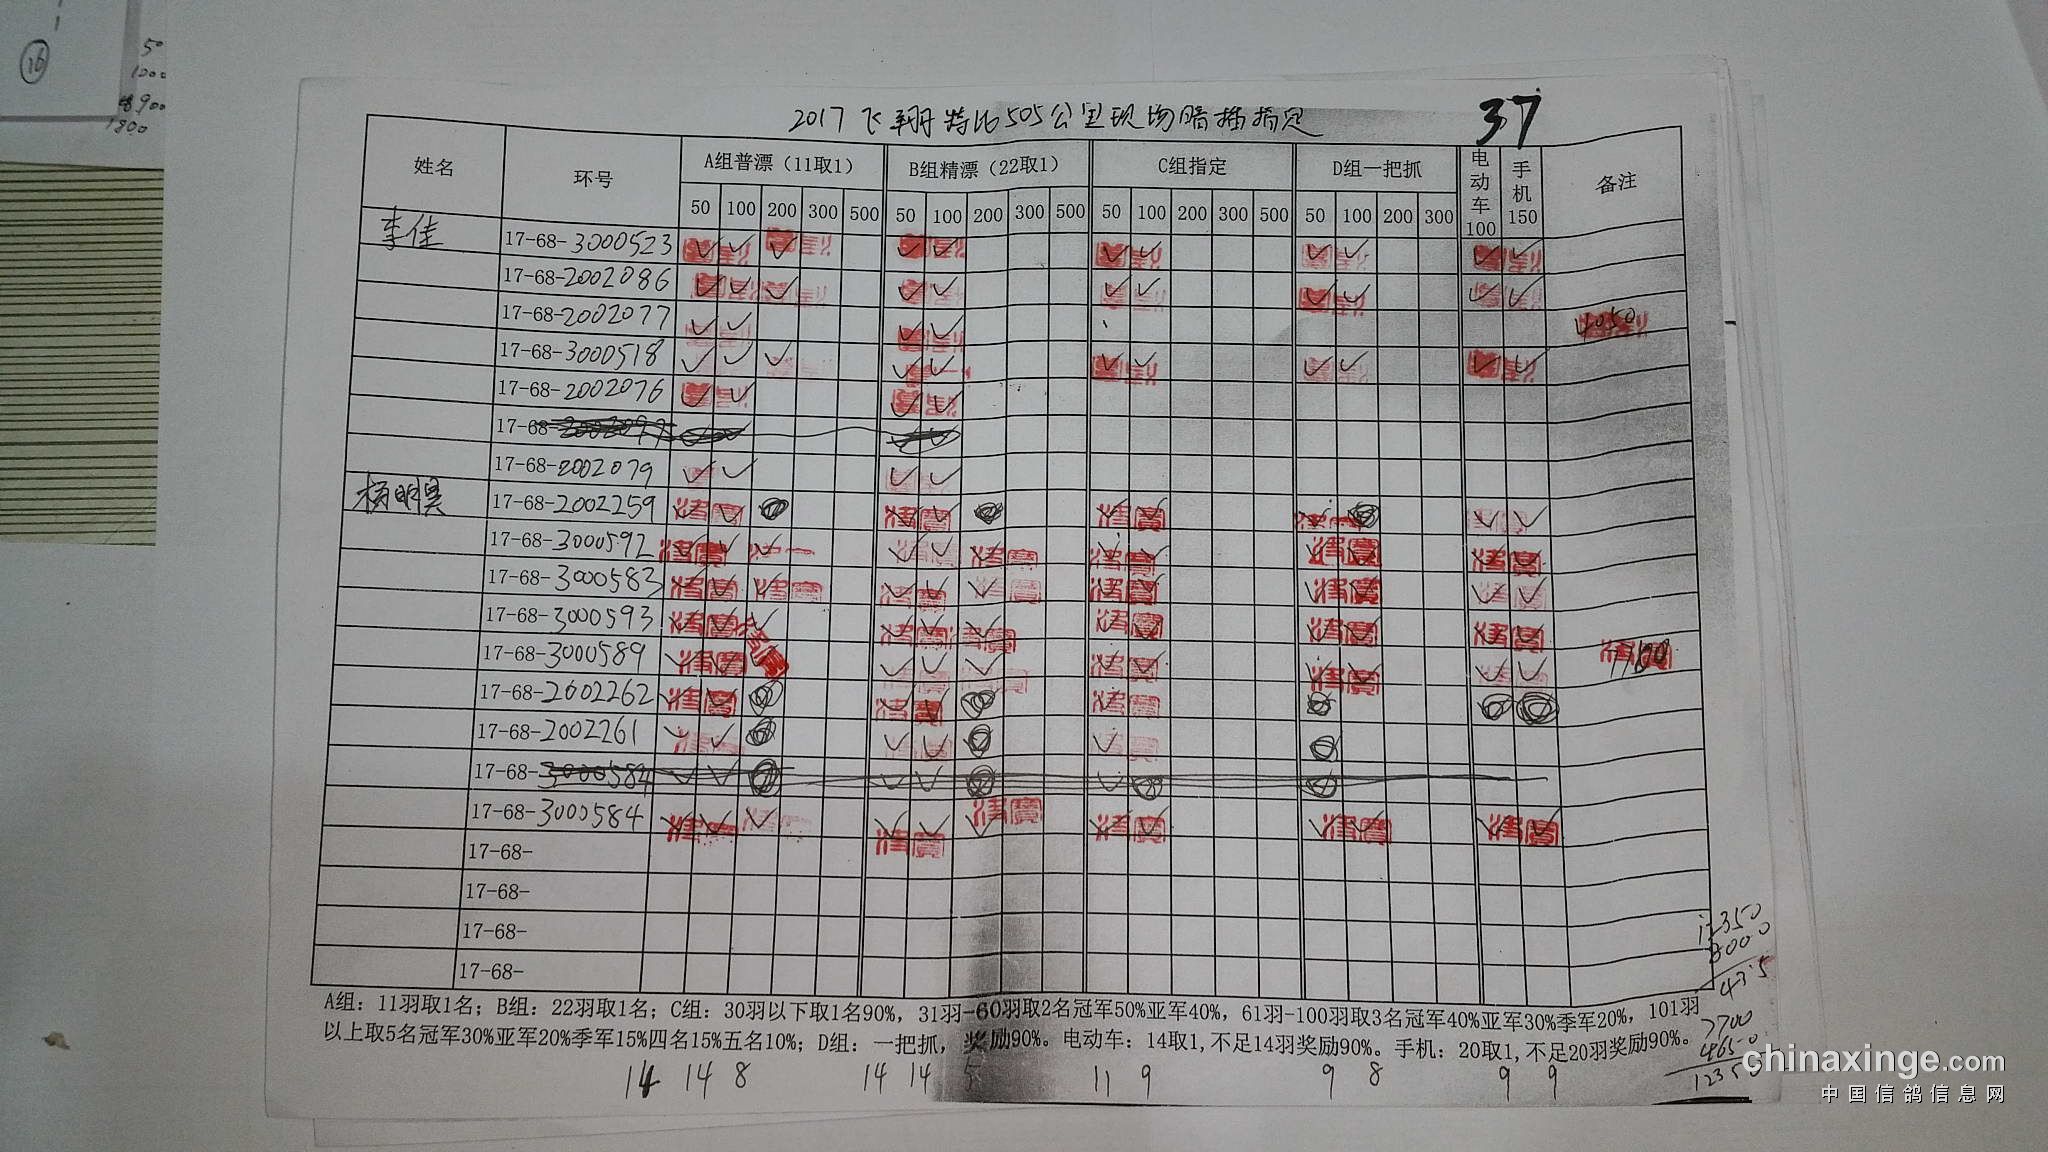 16
50
1000
8900
1800
2017飞翔特比505公里现场暗插指定 37
姓名 环号 A组普漂（11取1） B组精漂（22取1） C组指定 D组一把抓 电动车100 手机150 备注
50 100 200 300 500 50 100 200 300 500 50 100 200 300 500 50 100 200 300
李佳 17-68-3000523 ✓ ✓ ✓ ✓ ✓ ✓ ✓ ✓ ✓ ✓ ✓
17-68-2002086 ✓ ✓ ✓ ✓ ✓ ✓ ✓ ✓ ✓ ✓ ✓
17-68-2002077 ✓ ✓ ✓ ✓ 4050
17-68-3000518 ✓ ✓ ✓ ✓ ✓ ✓ ✓ ✓ ✓ ✓ ✓
17-68-2002076 ✓ ✓ ✓ ✓
17-68-
17-68-2002079 ✓ ✓ ✓ ✓
17-68-2002259 ✓ ✓ ✓ ✓ ✓ ✓ ✓ ✓ ✓
17-68-3000592 ✓ ✓ ✓ ✓ ✓ ✓ ✓ ✓ ✓ ✓ ✓ ✓
17-68-3000583 ✓ ✓ ✓ ✓ ✓ ✓ ✓ ✓ ✓ ✓ ✓ ✓
17-68-3000593 ✓ ✓ ✓ ✓ ✓ ✓ ✓ ✓ ✓ ✓ ✓ ✓
17-68-3000589 ✓ ✓ ✓ ✓ ✓ ✓ ✓ ✓ ✓ ✓ ✓ ✓
17-68-2002262 ✓ ✓ ✓ ✓ ✓ ✓
17-68-2002261 ✓ ✓ ✓ ✓ ✓
17-68-3000584 ✓ ✓ ✓ ✓ ✓
17-68-3000584 ✓ ✓ ✓ ✓ ✓ ✓ ✓ ✓ ✓ ✓ ✓ ✓
17-68-
17-68-
17-68-
17-68-
12350
8000
435
A组：11羽取1名；B组：22羽取1名；C组：30羽以下取1名90%，31羽-60羽取2名冠军50%亚军40%，61羽-100羽取3名冠军40%亚军30%季军20%，101羽
以上取5名冠军30%亚军20%季军15%四名15%五名10%；D组：一把抓，奖励90%。电动车：14取1,不足14羽奖励90%。手机：20取1,不足20羽奖励90%。
7700
4650
1235
14 14 8 14 14 5 11 9 9 8 9 9
chinaxinge.com
中国信鸽信息网